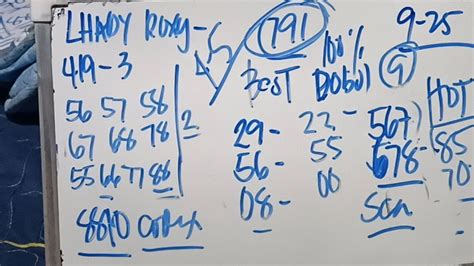 LHADY ROXY-
419-3
56 57 58
67 68 78
55 66 77 88
2
45
791
100%
9-25
BEST
G
HOT
29-
22-
567
85
56-
55
678-
70
08-
00
Scn